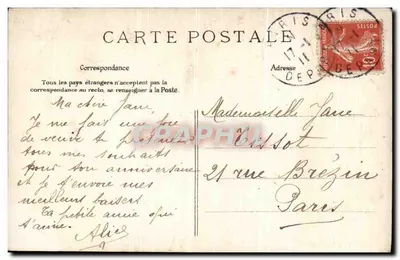 CARTE POSTALE
Correspondance
Adresse
Tous les pays étrangers n'acceptent pas la
correspondance au recto, se renseigner à la Poste.
Ma chère Jane
Je me fait une joie
de venir te présenter
tous mes souhaits
pour ton anniversaire
et je t'envoie mes
meilleurs baisers
Ta petite amie qui
t'aime.
Alice
Mademoiselle Jane
Tissot
21 rue Brézin
Paris
PARIS
17-1
11
DEP
10